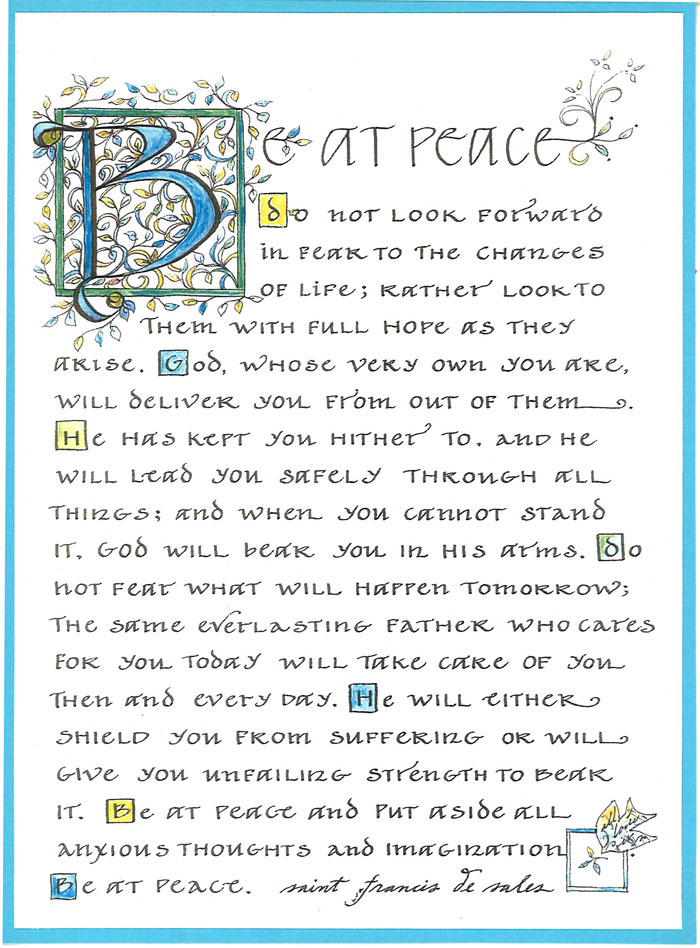 Be at peace
Do not look forward
in fear to the changes
of life; rather look to
them with full hope as they
arise. God, whose very own you are,
will deliver you from out of them.
He has kept you hither to, and He
will lead you safely through all
things; and when you cannot stand
it, God will bear you in His arms. Do
not fear what will happen tomorrow;
the same everlasting Father who cares
for you today will take care of you
then and every day. He will either
shield you from suffering or will
give you unfailing strength to bear
it. Be at peace and put aside all
anxious thoughts and imagination
Be at peace. saint francis de sales